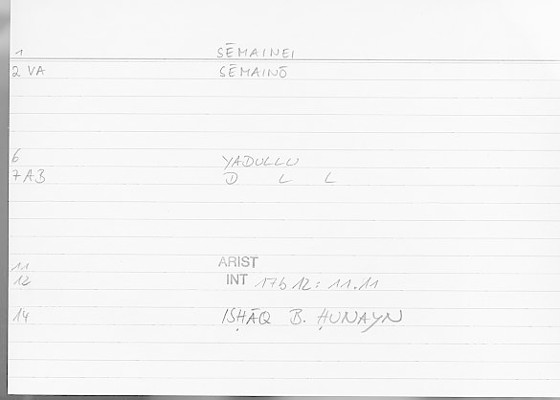 1 SĒMAINEI
2 VA SĒMAINŌ
6 YADULLU
7 AB D L L
11 ARIST
12 INT 17b 12: 11.11
14 ISḤĀQ B. ḤUNAYN